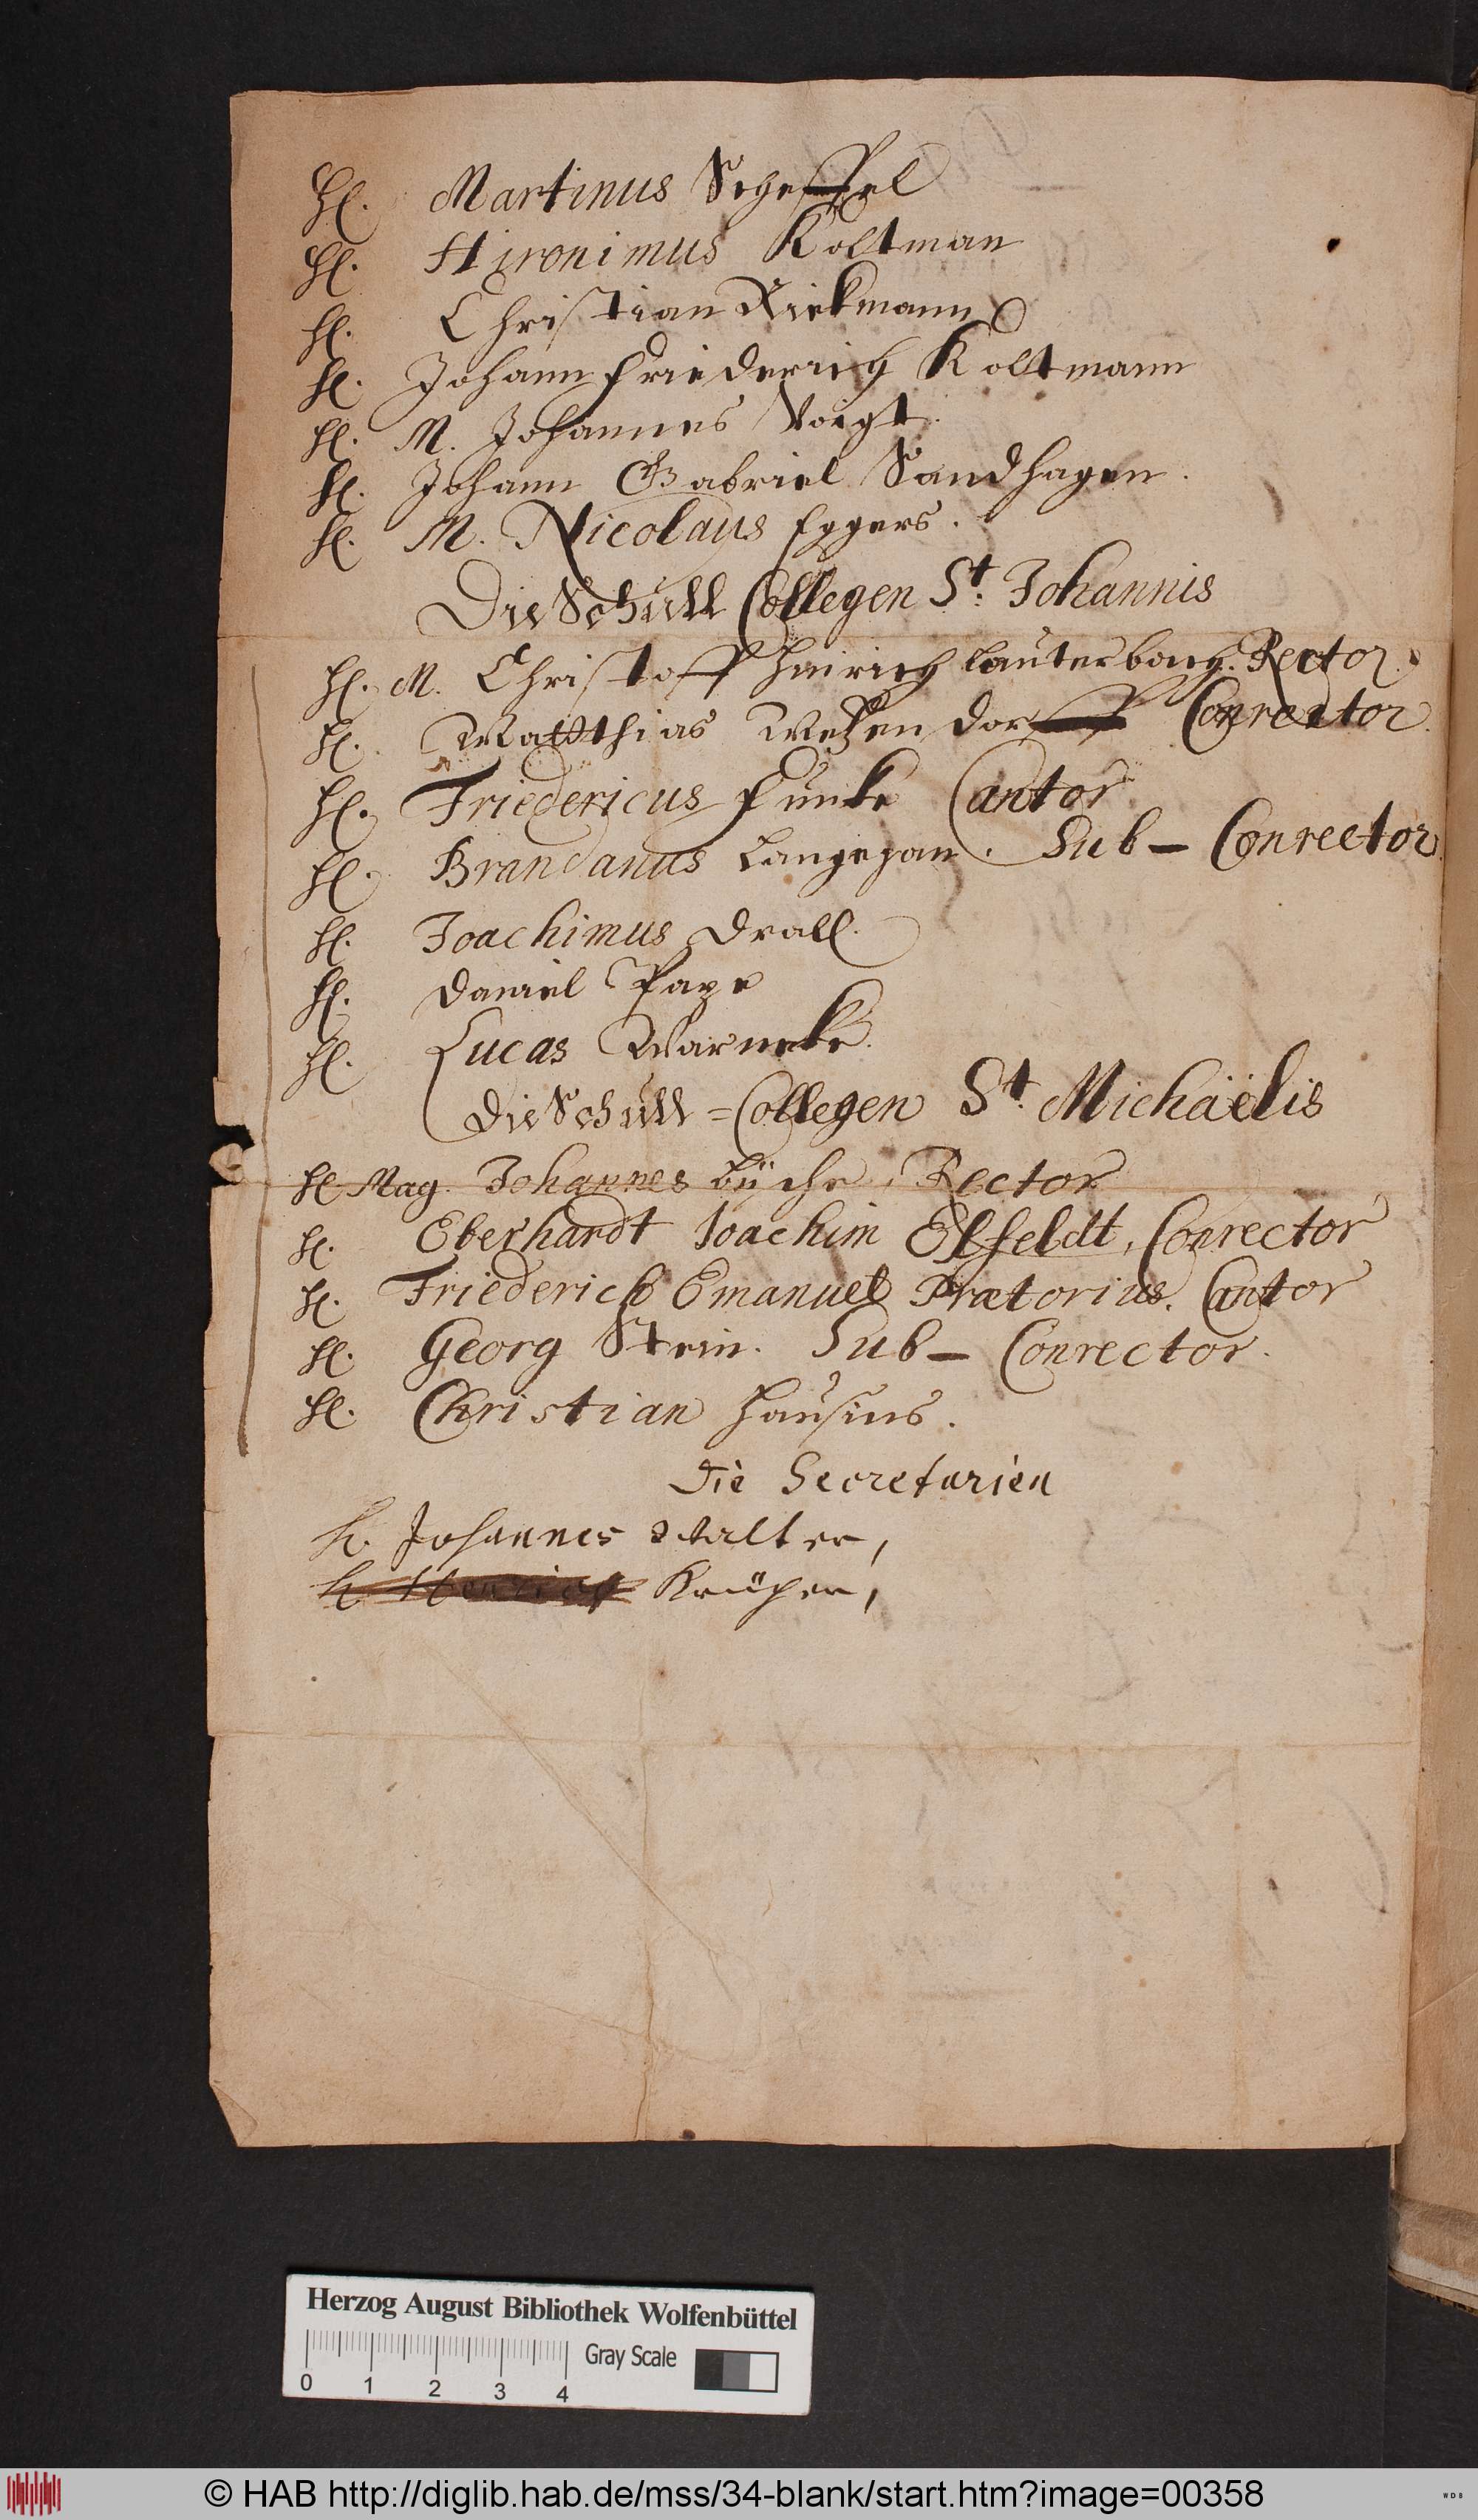 Hl. Martinus Scheffel
Hl. Hironimus Koltman
Hl. Christian Riekmann
Hl. Johann Friederich Koltmann
Hl. M. Johannes Voigt.
Hl. Johann Gabriel Sandhagen.
Hl. M. Nicolaus Eggers.
Die Schull Collegen St. Johannis
Hl. M. Christoff Hinrich Lauterbach. Rector.
Hl. Matthias Wetzendorff Conrector.
Hl. Friedericus Funke Cantor.
Hl. Brandanus Langejan. Sub- Conrector
Hl. Joachimus Drall.
Hl. Daniel Pape
Hl. Lucas Warneke.
Die Schull=Collegen St. Michäelis
Hl Mag. Johannes Büche, Rector
Hl. Eberhardt Joachim Elfeldt, Conrector
Hl. Friederich Emanuel Prætorius. Cantor
Hl. Georg Stein. Sub- Conrector.
Hl. Christian Hausius.
Die Secretarien
H. Johannes Walter,
H. Henrich Krüger,
Herzog August Bibliothek Wolfenbüttel
Gray Scale
0 1 2 3 4
© HAB http://diglib.hab.de/mss/34-blank/start.htm?image=00358
WDB